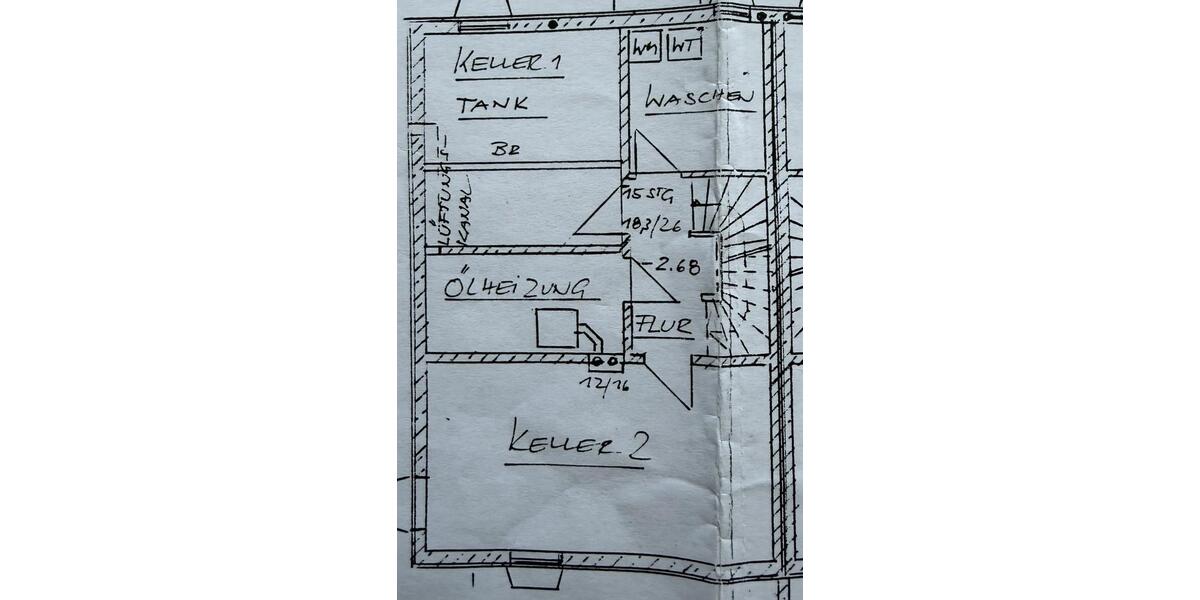 KELLER 1
TANK
BR
LÜFTUNGS-
KANAL
WM
WT
WASCHEN
15 STG
18,3/26
-2.68
ÖLHEIZUNG
FLUR
12/16
KELLER 2